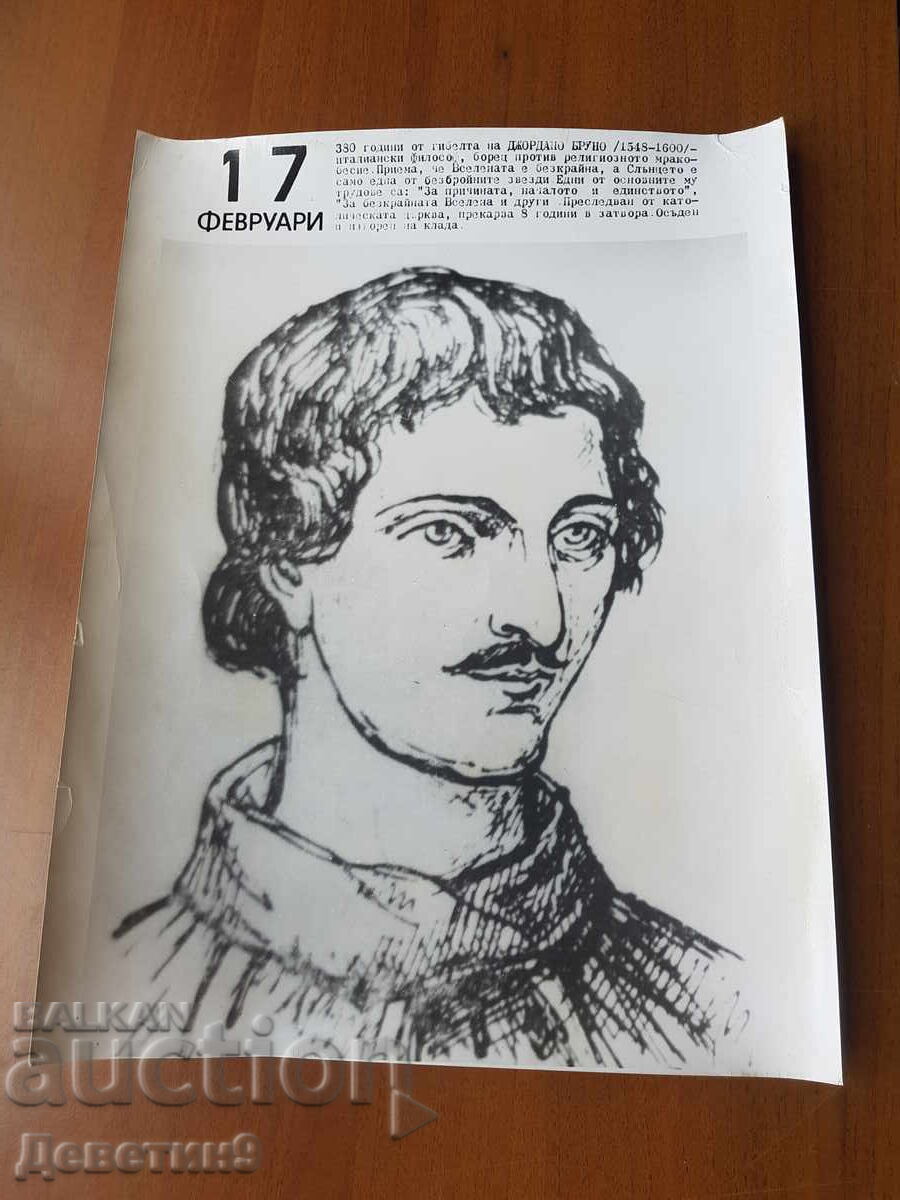 17
ФЕВРУАРИ
380 години от гибелта на ДЖОРДАНО БРУНО /1548-1600/-
италиански философ, борец против религиозното мрако-
бесие.Приема, че Вселената е безкрайна, а Слънцето е
само една от безбройните звезди Едни от основните му
трудове са: "За причината, началото и единството",
"За безкрайната Вселена и други .Преследван от като-
лическата църква, прекарва 8 години в затвора.Осъден
и изгорен на клада.
BALKAN
auction
Деветин9